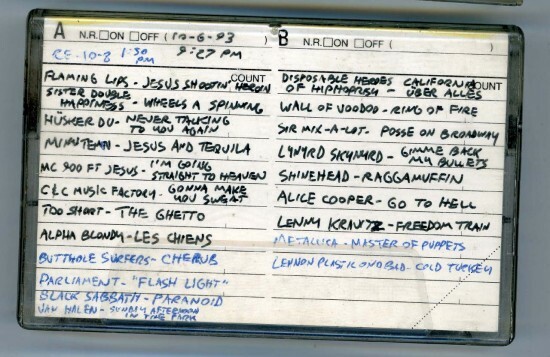 A N.R. ☐ON ☐OFF ( 10-6-93 )
RE-10-8 1:30 PM 9:27 PM
COUNT
FLAMING LIPS - JESUS SHOOTIN' HEROIN
SISTER DOUBLE
HAPPINESS - WHEELS A SPINNING
HÜSKER DU - NEVER TALKING
TO YOU AGAIN
MINUTEMEN - JESUS AND TEQUILA
MC 900 FT JESUS - I'M GOING
STRAIGHT TO HEAVEN
C&C MUSIC FACTORY - GONNA MAKE
YOU SWEAT
TOO SHORT - THE GHETTO
ALPHA BLONDY - LES CHIENS
BUTTHOLE SURFERS - CHERUB
PARLIAMENT - "FLASH LIGHT"
BLACK SABBATH - PARANOID
VAN HALEN - SUNDAY AFTERNOON
IN THE PARK
B N.R. ☐ON ☐OFF ( )
COUNT
DISPOSABLE HEROES CALIFORNIA
OF HIPHOPRISY - ÜBER ALLES
WALL OF VOODOO - RING OF FIRE
SIR MIX-A-LOT - POSSE ON BROADWAY
LYNYRD SKYNYRD - GIMME BACK
MY BULLETS
SHINEHEAD - RAGGAMUFFIN
ALICE COOPER - GO TO HELL
LENNY KRAVITZ - FREEDOM TRAIN
METALLICA - MASTER OF PUPPETS
LENNON PLASTIC ONO BAD - COLD TURKEY